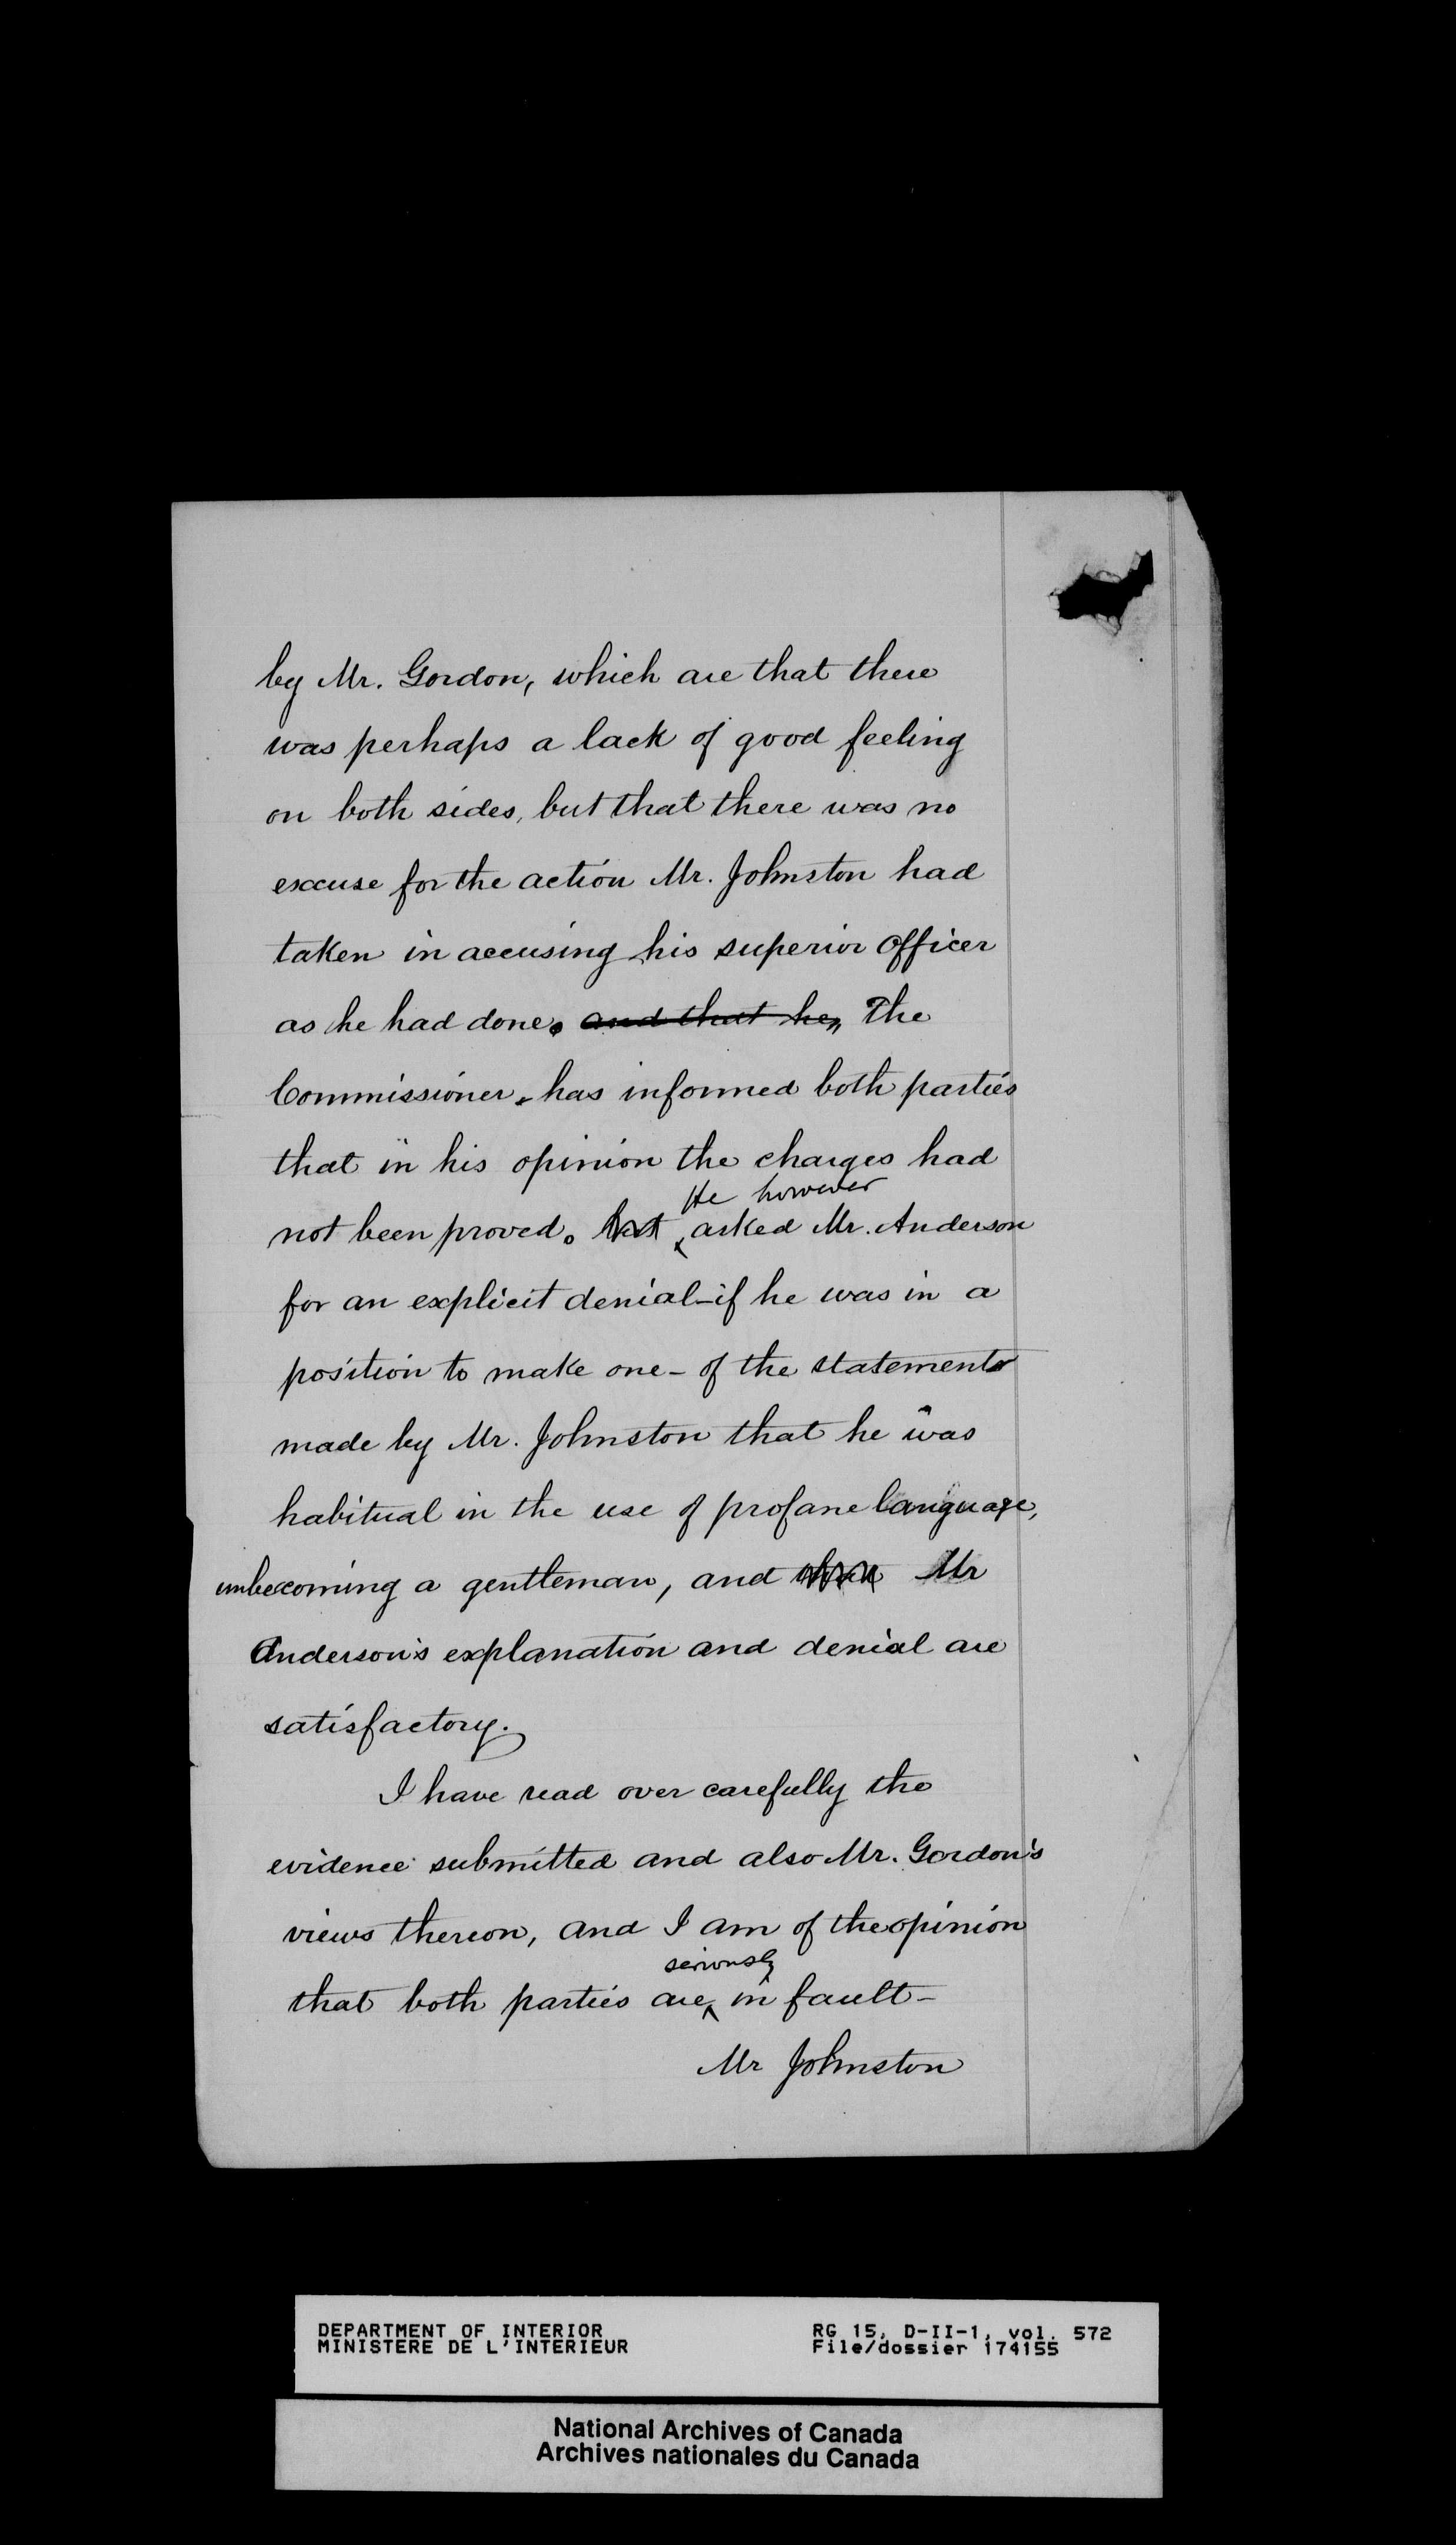 by Mr. Gordon, which are that there
was perhaps a lack of good feeling
on both sides, but that there was no
excuse for the action Mr. Johnston had
taken in accusing his superior officer
as he had done. and that he, The
Commissioner has informed both parties
that in his opinion the charges had
He however
not been proved. but asked Mr. Anderson
for an explicit denial - if he was in a
position to make one - of the statements
made by Mr. Johnston that he was
habitual in the use of profane language,
unbecoming a gentleman, and Mr
Anderson's explanation and denial are
satisfactory.
I have read over carefully the
evidence submitted and also Mr. Gordon's
views thereon, and I am of the opinion
seriously
that both parties are in fault -
Mr Johnston
DEPARTMENT OF INTERIOR
MINISTERE DE L'INTERIEUR
RG 15, D-II-1, vol. 572
File/dossier 174155
National Archives of Canada
Archives nationales du Canada